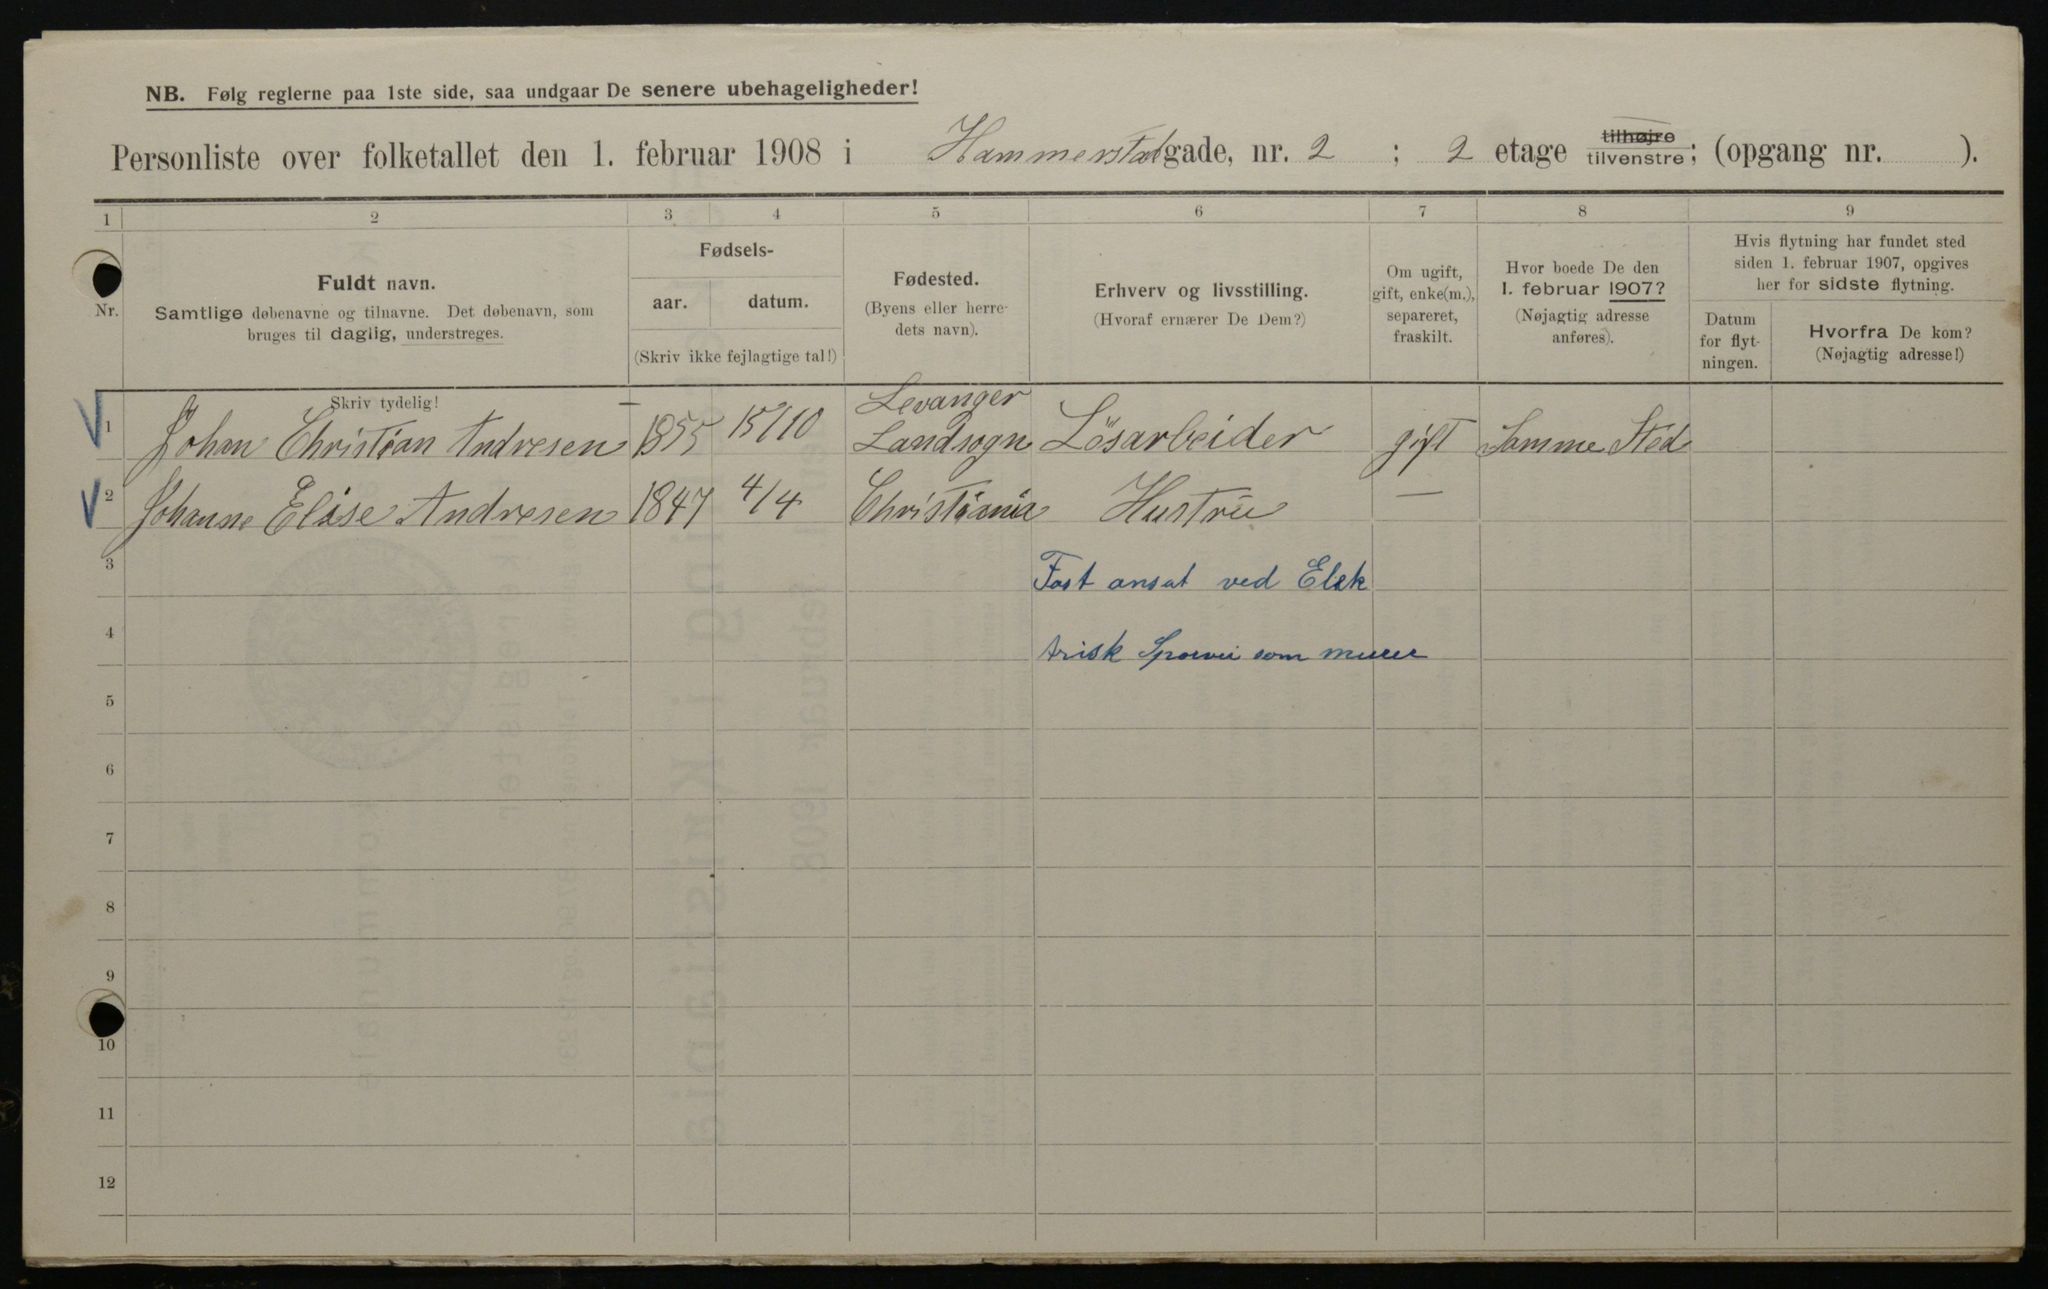 NB. Følg reglerne paa 1ste side, saa undgaar De senere ubehageligheder!
Personliste over folketallet den 1. februar 1908 i Hammerstadgade, nr. 2 ; 2 etage tilhøjre tilvenstre; (opgang nr. ).
1 2 3 4 5 6 7 8 9
Nr.
Fuldt navn.
Samtlige døbenavne og tilnavne. Det døbenavn, som
bruges til daglig, understreges.
Fødsels-
aar. datum.
(Skriv ikke fejlagtige tal!)
Fødested.
(Byens eller herre-
dets navn).
Erhverv og livsstilling.
(Hvoraf ernærer De Dem?)
Om ugift,
gift, enke(m.),
separeret,
fraskilt.
Hvor boede De den
1. februar 1907?
(Nøjagtig adresse
anføres).
Hvis flytning har fundet sted
siden 1. februar 1907, opgives
her for sidste flytning.
Datum
for flyt-
ningen.
Hvorfra De kom?
(Nøjagtig adresse!)
Skriv tydelig!
Levanger
1 Johan Christian Andresen 1855 15/10 Landsogn Lösarbeider gift Samme Sted
2 Johanne Elise Andresen 1847 4/4 Christiania Hustru —
3 Fast ansat ved Elek
4 trisk Sporvei som murer
5
6
7
8
9
10
11
12